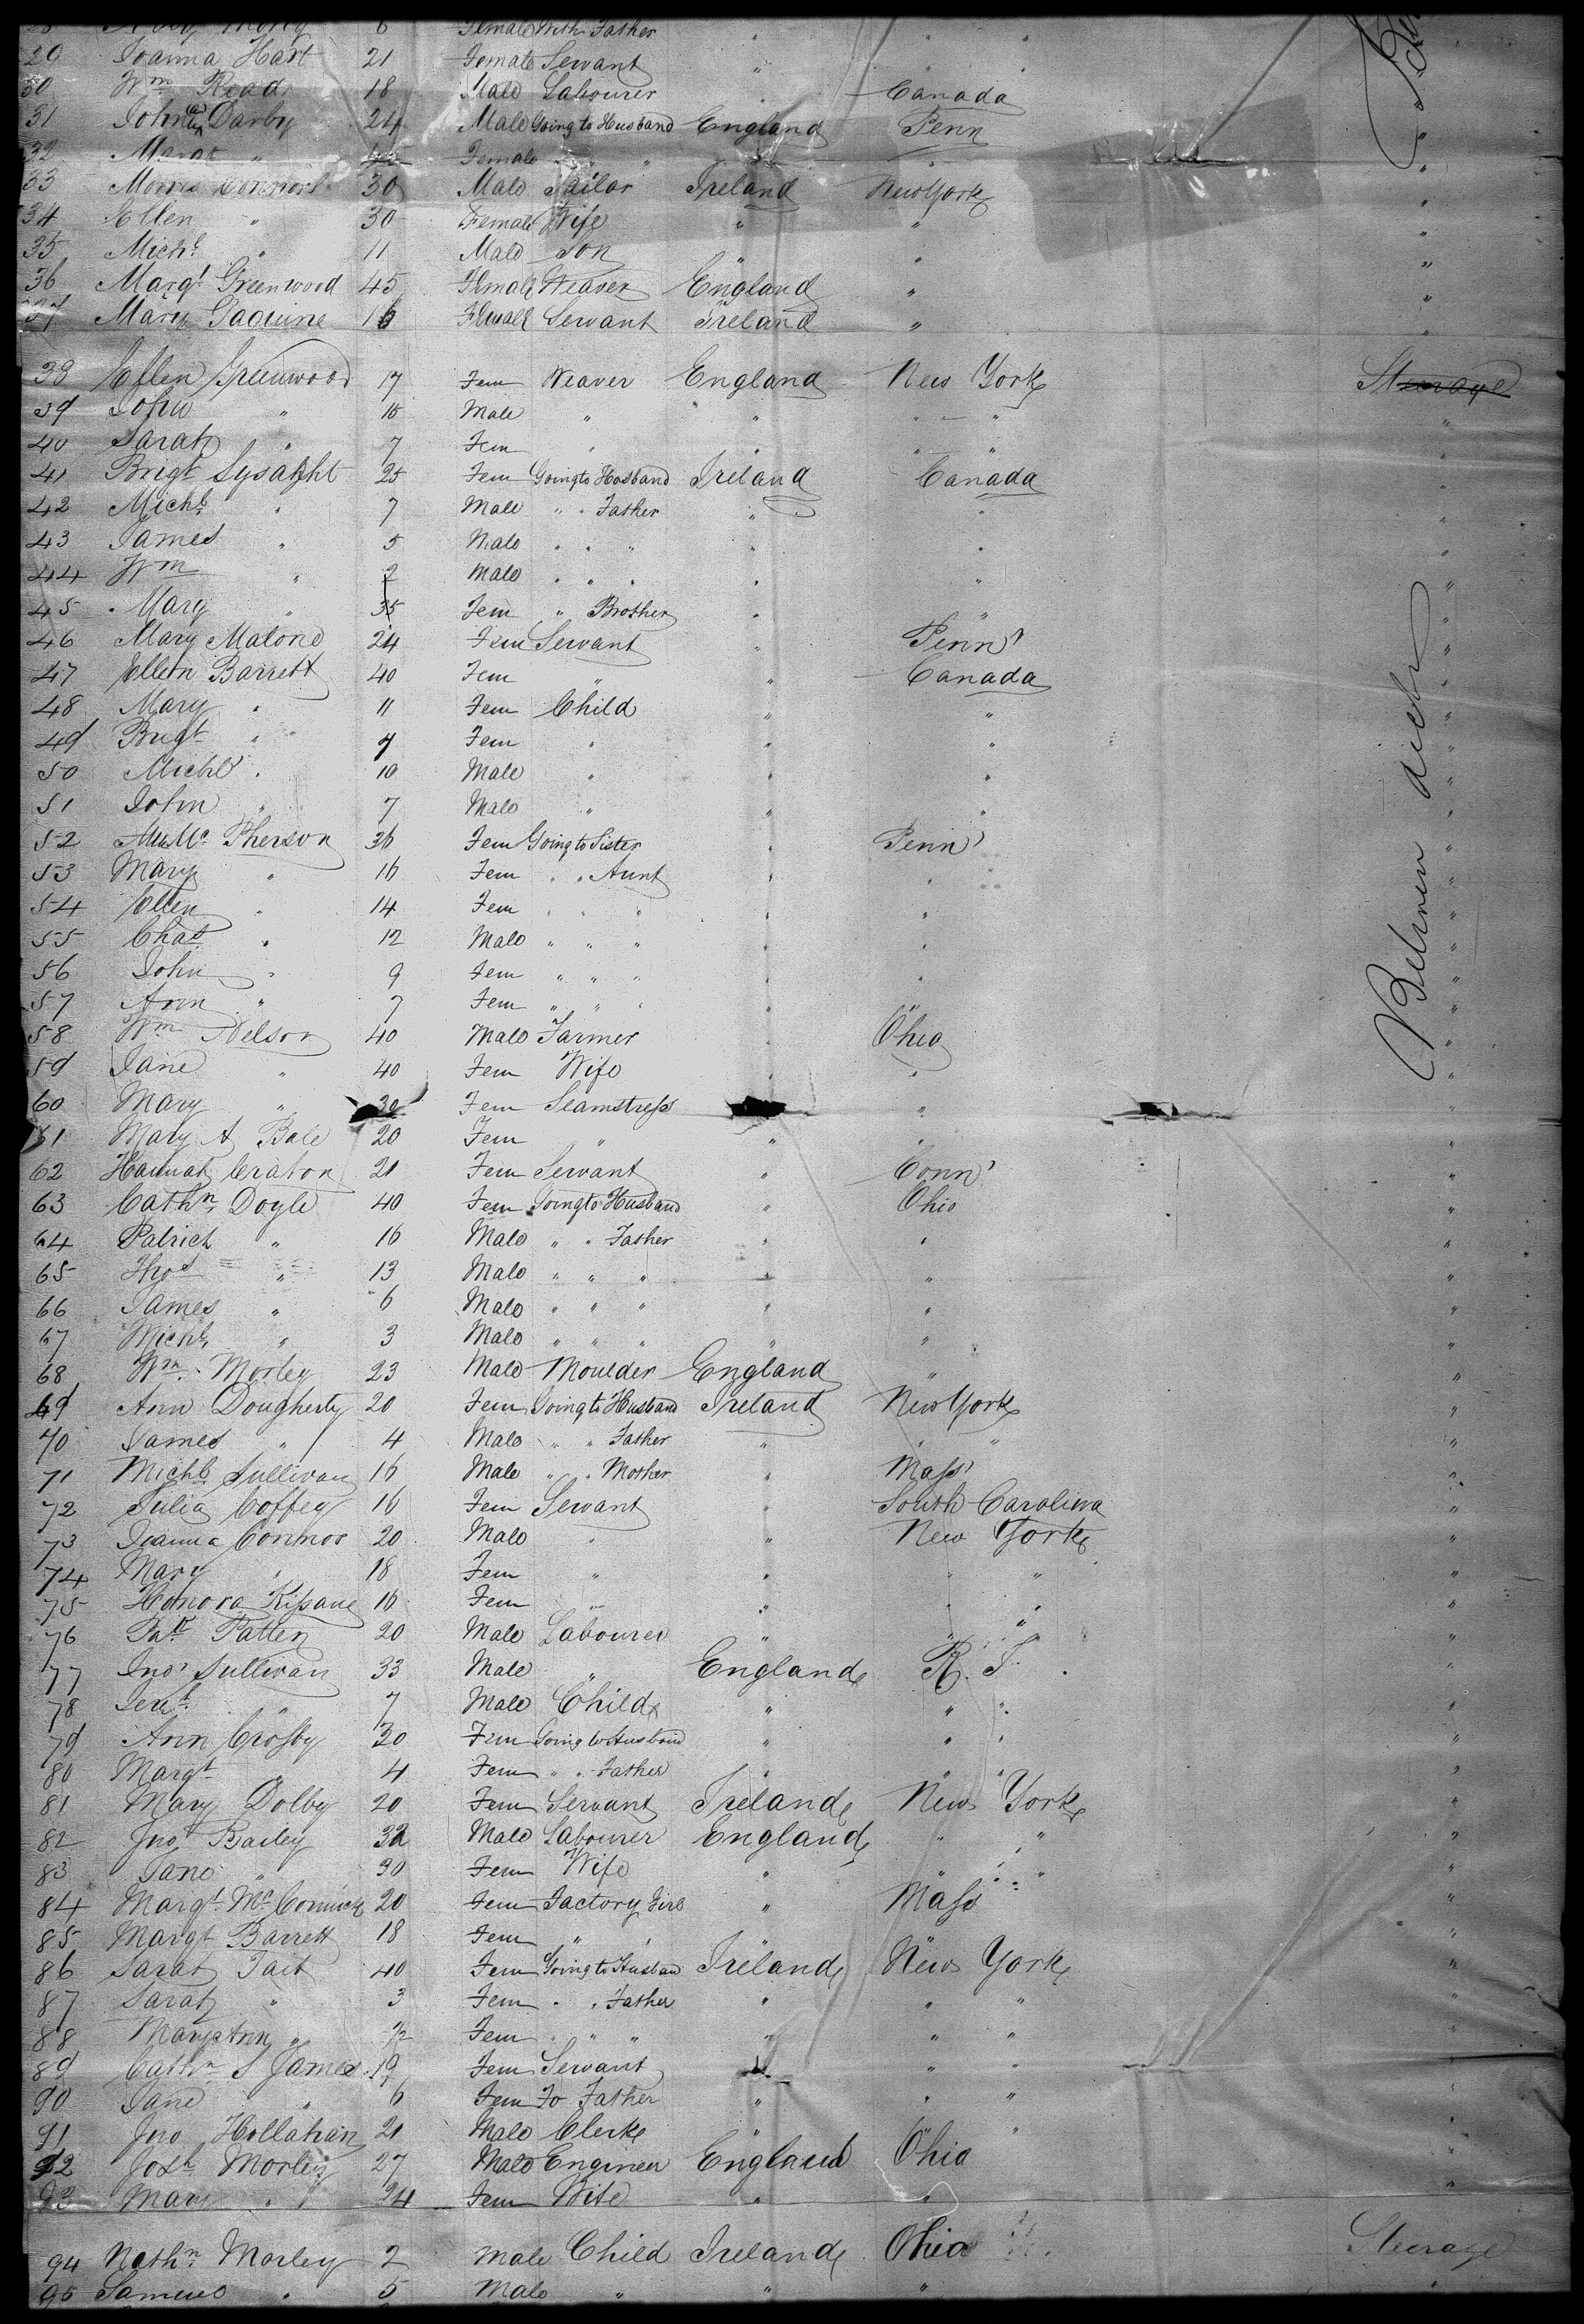 6 Female With Father " "
29 Joanna Hart 21 Female Servant " "
30 Wm Read 18 Male Labourer " Canada
31 John Darby 24 Male Going to Husband England Penn
32 Margt " Female " " " " "
33 Morris Connors 30 Male Tailor Ireland New York "
34 Ellen " 30 Female Wife " " "
35 Michl " 11 Male Son " " "
36 Margt Greenwood 45 Female Weaver England " "
37 Mary 16 Female Servant Ireland " "
38 Ellen Greenwood 17 Fem Weaver England New York Steerage
39 John " 15 Male " " " " "
40 Sarah " 7 Fem " " " " "
41 Brigt Lysaght 25 Fem Going to Husband Ireland Canada "
42 Michl " 7 Male " " Father " " "
43 James " 5 Male " " " " " "
44 Wm " 2 Male " " " " " "
45 Mary " 35 Fem " Brother " " "
46 Mary Malone 24 Fem Servant " Penn "
47 Ellen Barrett 40 Fem " " Canada "
48 Mary " 11 Fem Child " " "
49 Brigt " 4 Fem " " " "
50 Michl " 10 Male " " " "
51 John " 7 Male " " " "
52 Mc Pherson 36 Fem Going to Sister " Penn "
53 Mary " 16 Fem " " Aunt " " "
54 Ellen " 14 Fem " " " " " "
55 Chas " 12 Male " " " " " "
56 John " 9 Fem " " " " " "
57 Ann " 7 Fem " " " " " "
58 Wm Nelson 40 Male Farmer " Ohio "
59 Jane " 40 Fem Wife " " "
60 Mary " 30 Fem Seamstress " "
61 Mary A Bale 20 Fem " " " "
62 Hannah Craton 21 Fem Servant " Conn "
63 Cathn Doyle 40 Fem Going to Husband " Ohio "
64 Patrick " 16 Male " " Father " " "
65 Thos " 13 Male " " " " " "
66 James " 6 Male " " " " " "
67 Michl " 3 Male " " " " " "
68 Wm Morley 23 Male Moulder England " "
69 Ann Dougherty 20 Fem Going to Husband Ireland New York "
70 James " 4 Male " " Father " " " "
71 Michl Sullivan 16 Male " " Mother " Mass "
72 Julia Coffey 16 Fem Servant " South Carolina "
73 Joanna Connor 20 Male " " New York "
74 Mary " 18 Fem " " " " "
75 Honora Kissane 16 Fem " " " " "
76 Patk Patten 20 Male Labourer " " " "
77 Jno Sullivan 33 Male " England R. I. "
78 " 7 Male Child " " " "
79 Ann Crosby 30 Fem Going to Husband " " " "
80 Margt " 4 Fem " " Father " " " "
81 Mary Dolby 20 Fem Servant Ireland New York "
82 Jno Bailey 32 Male Labourer England " " "
83 Jane " 30 Fem Wife " " " "
84 Margt McCormick 20 Fem Factory Girl " Mass "
85 Margt Barrett 18 Fem " " " " "
86 Sarah Tait 40 Fem Going to Husban Ireland New York "
87 Sarah " 3 Fem " " Father " " " "
88 Mary Ann " Fem " " " " " " "
89 Cathn St James 19 Fem Servant " " "
90 Jane " 6 Fem To Father " " " "
91 Jno Hollahan 21 Male Clerk " " "
92 Josh Morley 27 Male Engineer England Ohio "
93 Mary " 24 Fem Wife " " "
94 Nathn Morley 2 Male Child Ireland Ohio Steerage
95 " 5 Male " " " "
Between decks